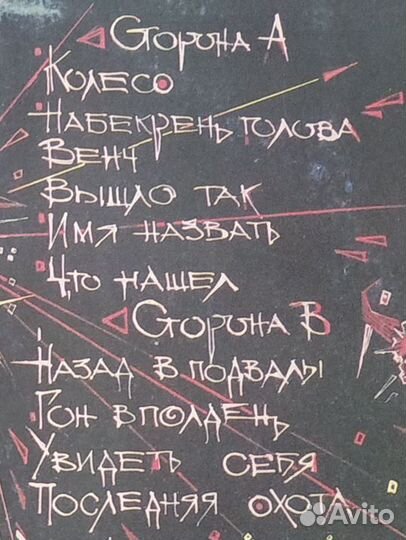 Сторона А
Колесо
Набекрень голова
Венч
Вышло так
Имя назвать
Что нашел
Сторона В
Назад в подвалы
Гон в полдень
Увидеть себя
Последняя охота
Avito